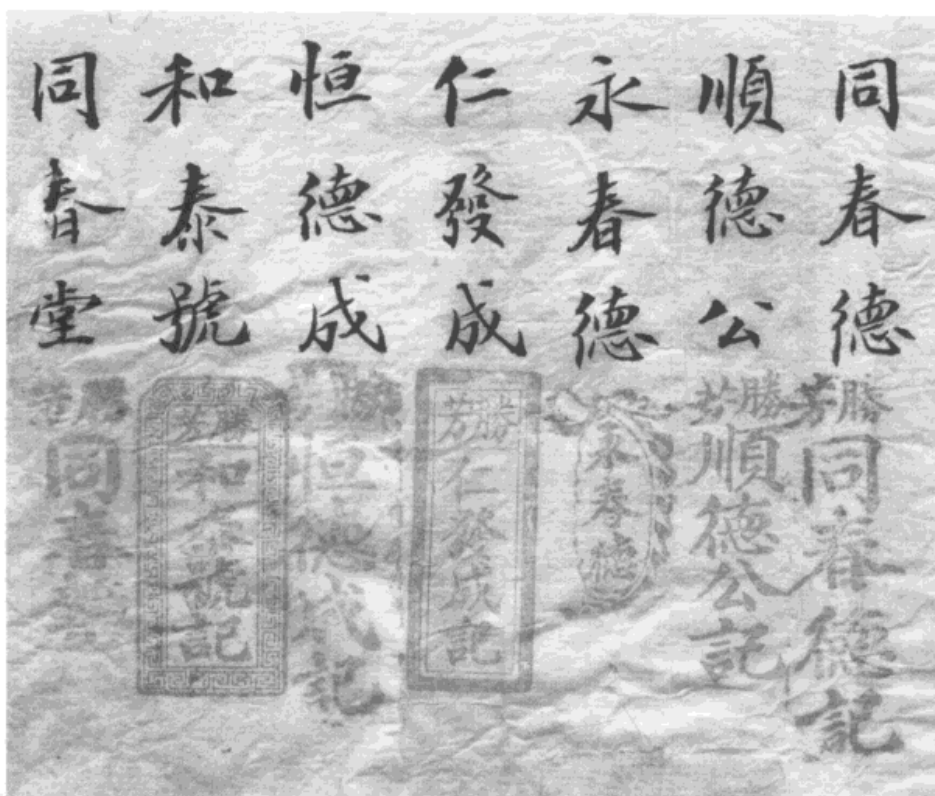 同春德
順德公
永春德
仁發成
恒德成
和泰號
同春堂
勝芳
同春德記
勝芳
順德公記
永春德
勝芳
仁發成記
恒德成記
勝芳
和泰號記
同春